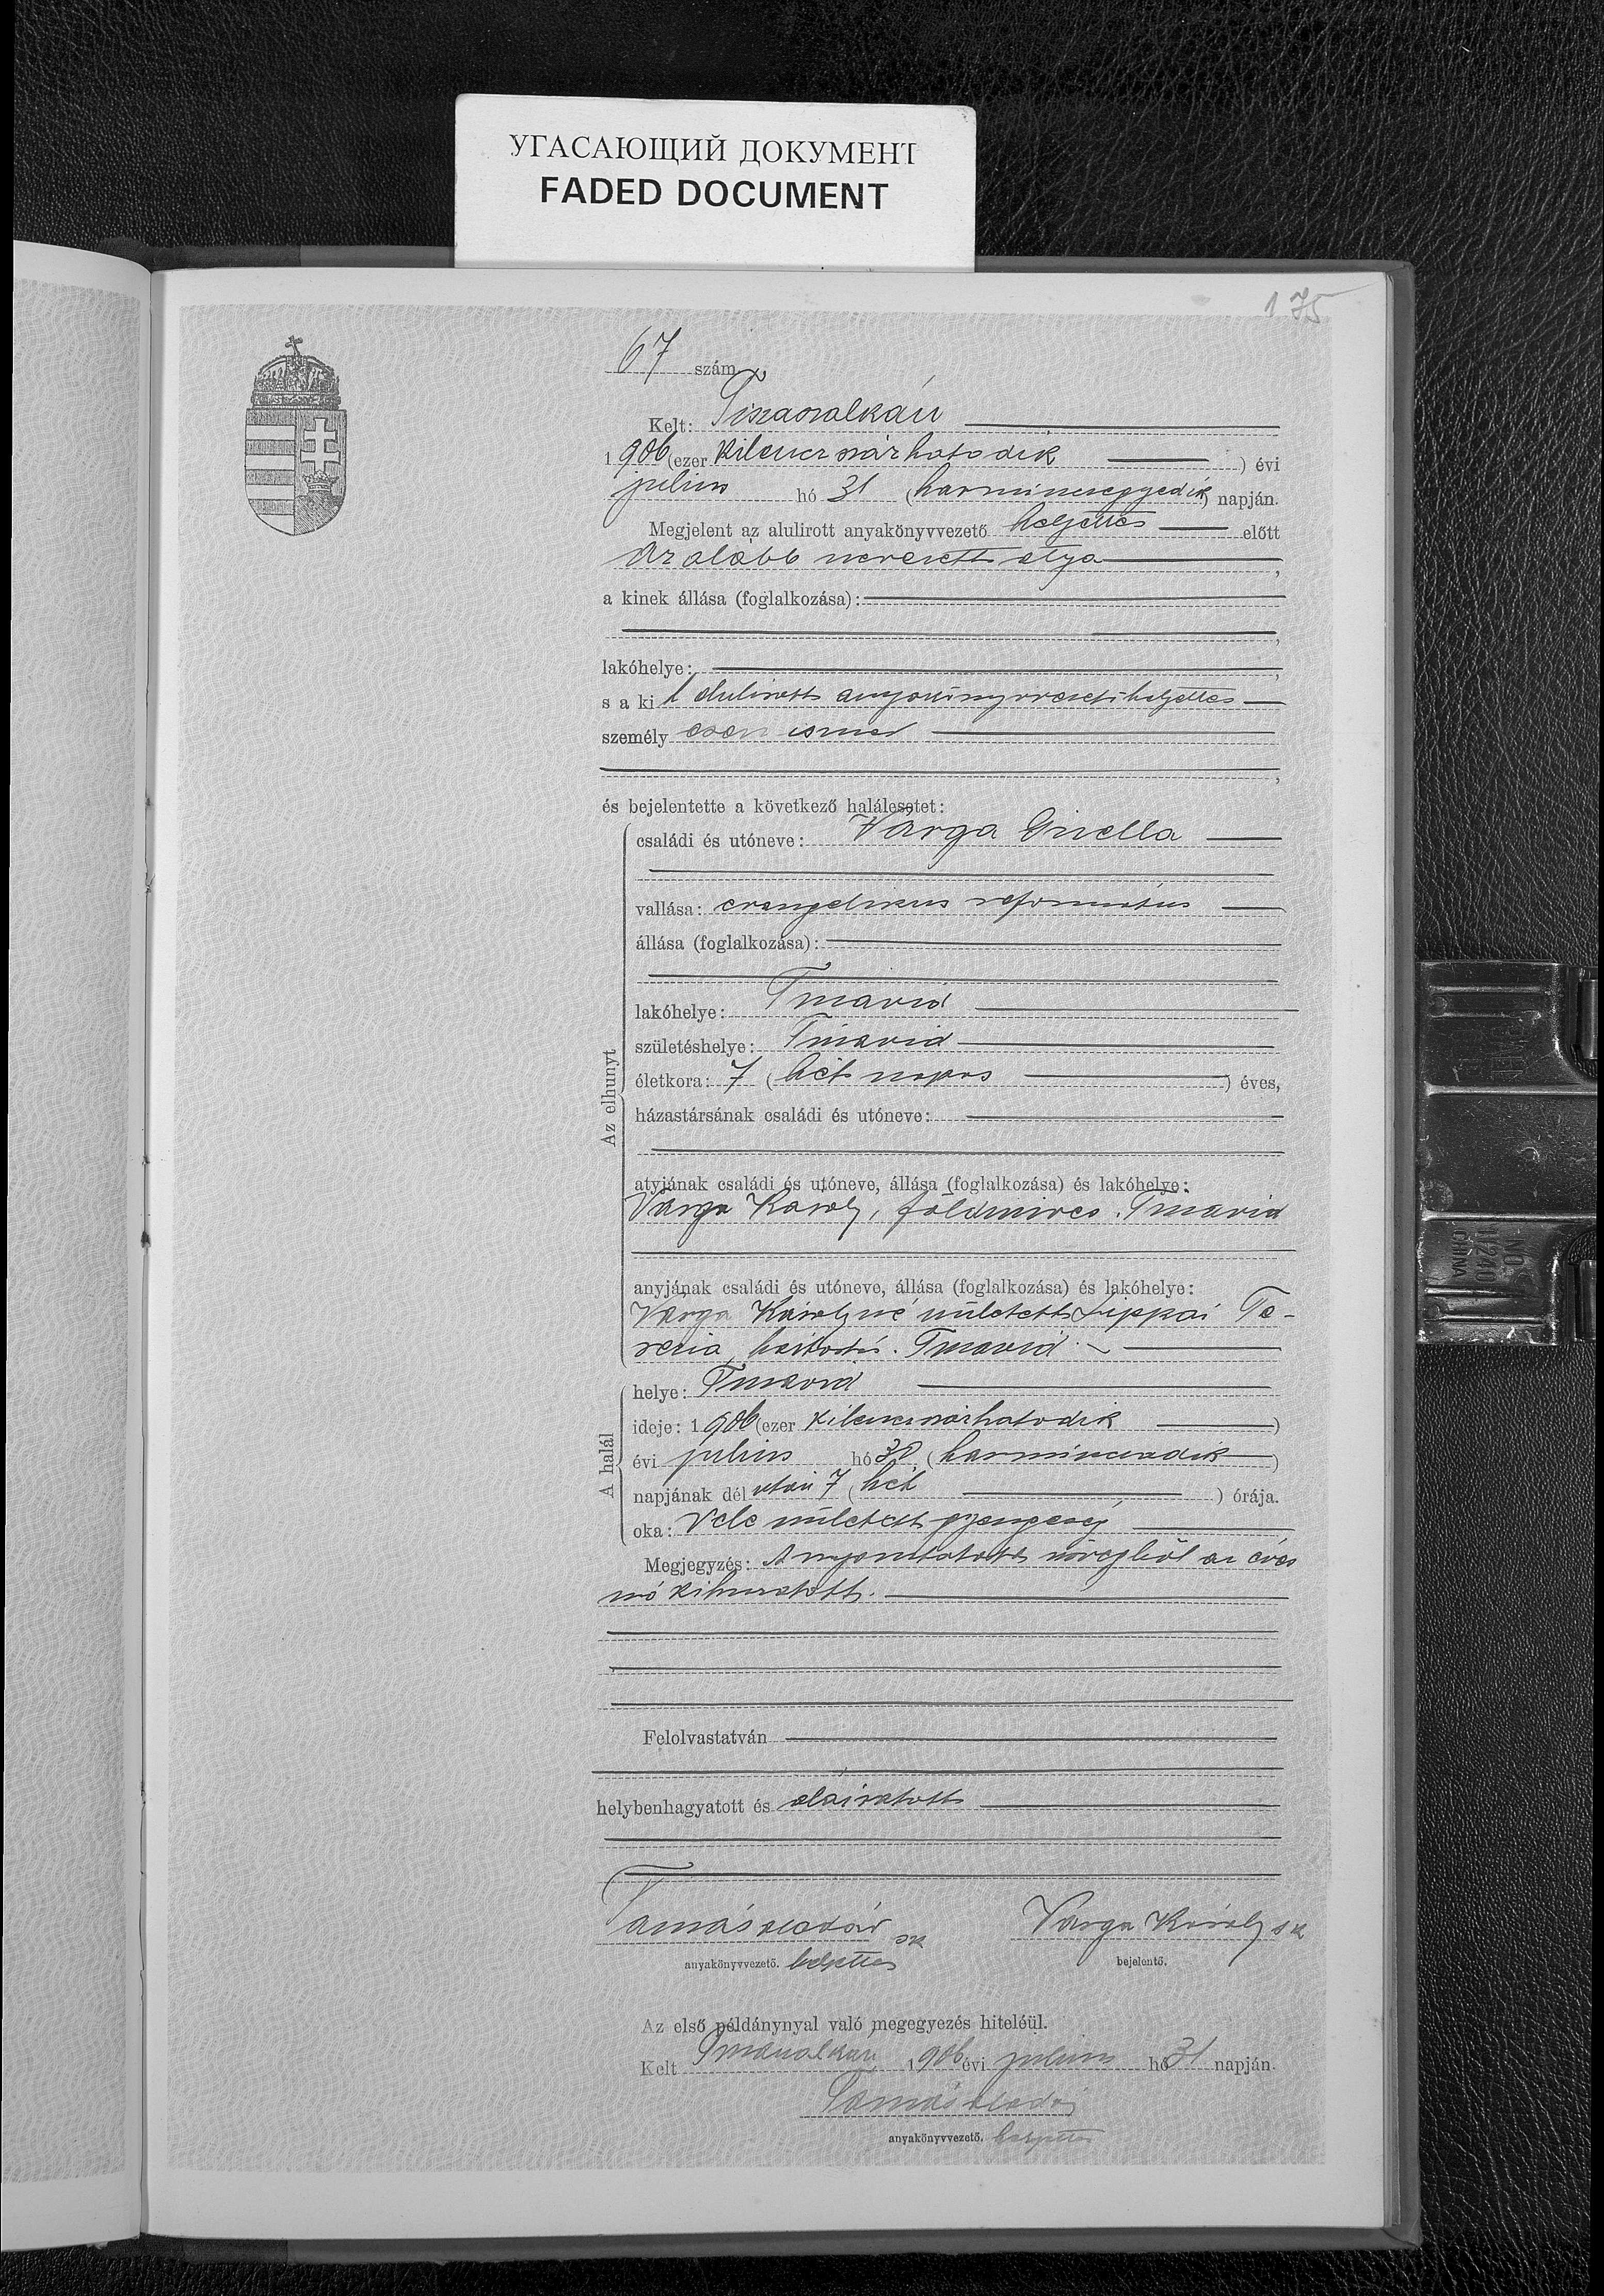 УГАСАЮЩИЙ ДОКУМЕНТ
FADED DOCUMENT
175
67 szám
Kelt: Tiszaszalkán
1906 (ezer kilenczszázhatodik ) évi
julius hó 31 (harminczegyedik) napján.
Megjelent az alulirott anyakönyvvezető helyettes előtt
az alább nevezett atyja ,
a kinek állása (foglalkozása):
,
lakóhelye: ,
s a kit alulirott anyakönyvvezető helyettes
személyesen ismer
,
és bejelentette a következő halálesetet:
Az elhunyt
családi és utóneve: Varga Gizella
vallása: evangelikus református
állása (foglalkozása):
lakóhelye: Tiszavid
születéshelye: Tiszavid
életkora: 7 (hét napos ) éves,
házastársának családi és utóneve:
atyjának családi és utóneve, állása (foglalkozása) és lakóhelye:
Varga Károly, földmives. Tiszavid
anyjának családi és utóneve, állása (foglalkozása) és lakóhelye:
Varga Károlyné született Lippai Te-
rézia, háztartás. Tiszavid
A halál
helye: Tiszavid
ideje: 1906 (ezer kilenczszázhatodik )
évi julius hó 30 (harminczadik )
napjának dél után 7 (hét ) órája.
oka: Vele született gyengeség
Megjegyzés: A nyomtatott szövegből az éves
szó kihuzatott.
Felolvastatván
helybenhagyatott és aláiratott
Tamás Aladár sk
Varga Károly sk
anyakönyvvezető. helyettes
bejelentő.
Az első példánynyal való megegyezés hiteléül.
Kelt Tiszaszalkán 1906 évi julius hó 31 napján.
Tamás Aladár
anyakönyvvezető. helyettes